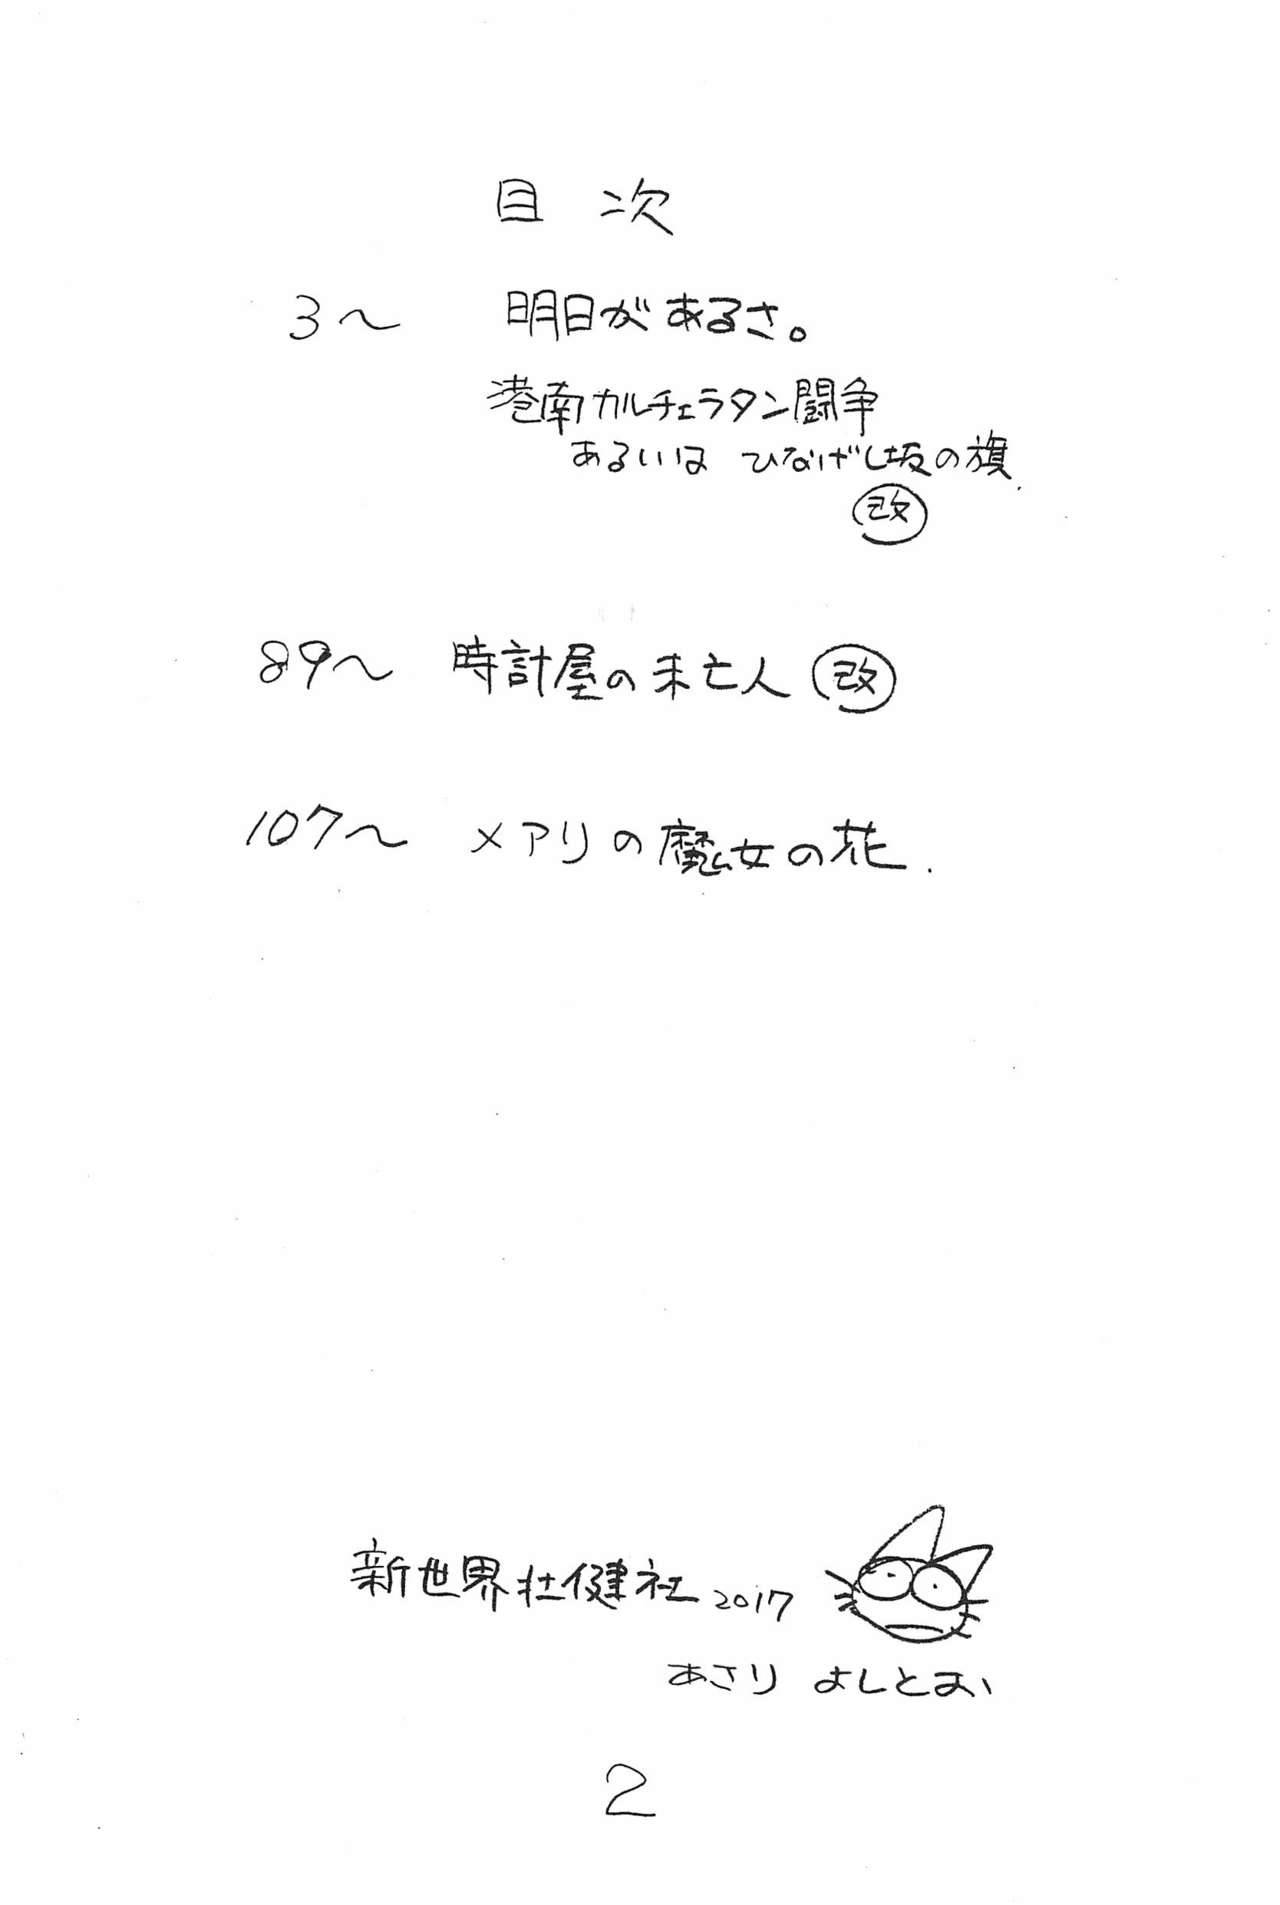 目次
3～ 明日があるさ。
港南カルチェラタン闘争
あるいは ひなげし坂の旗.
改
89～ 時計屋の未亡人 改
107～ メアリの魔女の花.
新世界壮健社 2017
あさり よしとお
2